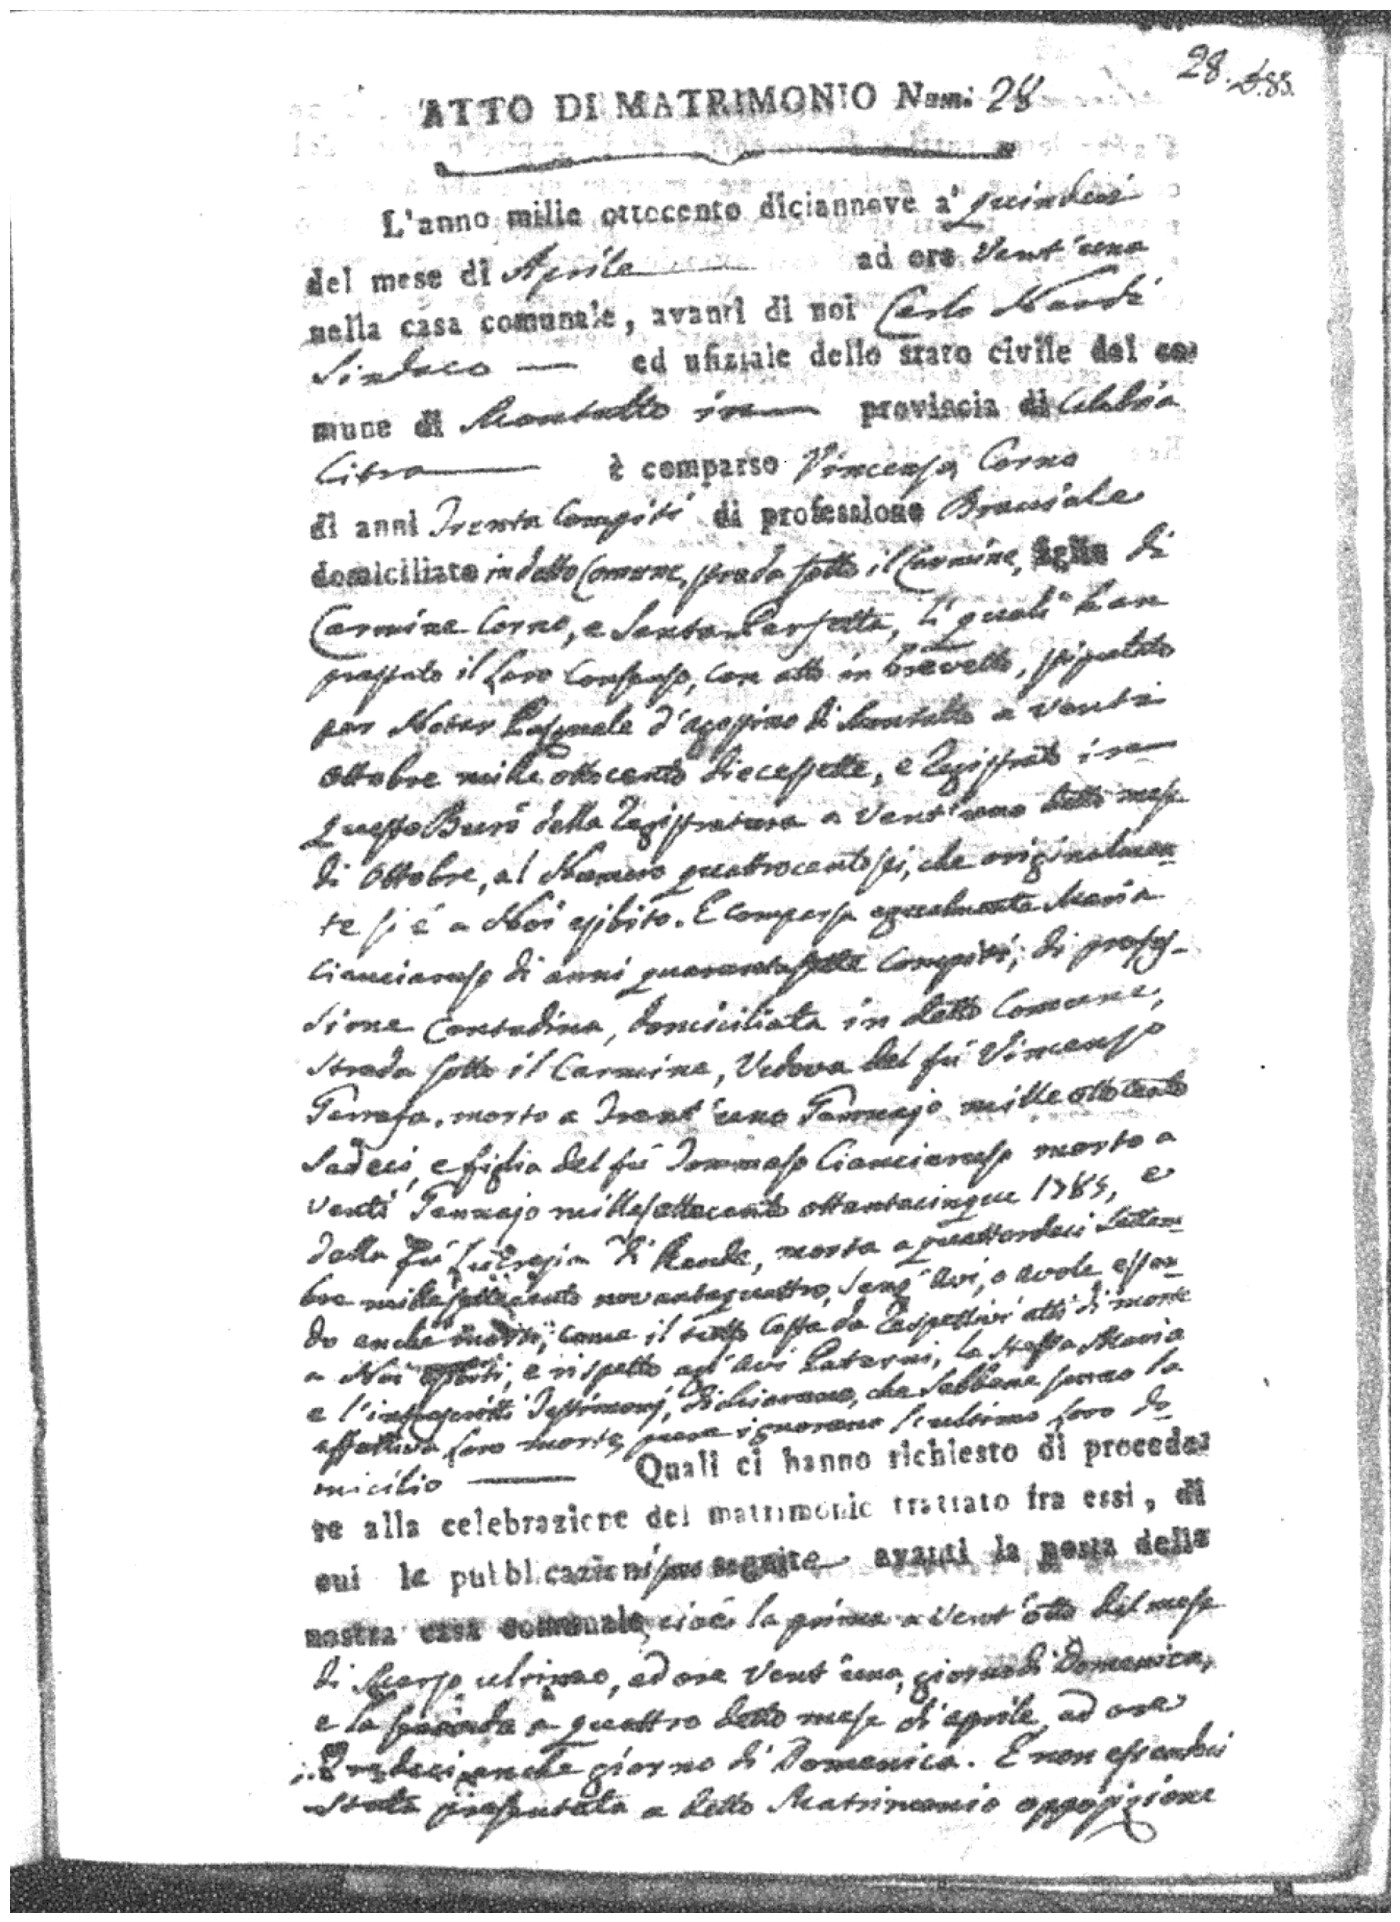 28.
ATTO DI MATRIMONIO Num: 28
L'anno mille ottocento diciannove a' quindeci
del mese di Aprile ad ore Vent'una
nella casa comunale, avanti di noi Carlo Nardi
Sindaco ed ufiziale dello stato civile del co-
mune di Montalto in provincia di Calabria
Citra è comparso Vincenzo Corno
di anni Trenta Compiti di professione Bracciale
domiciliato in detto Comune, strada sotto il Carmine, figlio di
Carmine Corno, e Santa Perfetta, li quali han
prestato il loro consenso, con atto in brevetto, stipulato
per Notar Pasquale d'agostino di Montalto a venti
Ottobre mille ottocento diecessette, e Registrato in
questo Burò della Registratura a Vent'uno detto mese
di Ottobre, al Numero quattrocentosei, che originalmen-
te si è a Noi esibito. E comparsa egualmente Maria
Cianciaruso di anni quarantasette compiti, di profes-
sione Contadina, domiciliata in detto Comune,
strada sotto il Carmine, Vedova del fù Vincenzo
morto a Trent'uno Gennajo mille ottocento
Sedeci, e figlia del fù Tommaso Cianciaruso morto a
venti Gennajo millesettecento ottantacinque 1785, e
della fù Lucrezia di Rende, morta a quattordeci Settem-
bre millesettecento novantaquattro, senz'avi, e avole essen-
do anche morti, come il tutto costa da rispettivi atti di morte
a Noi esibiti, e rispetto agl'avi Paterni, la stessa Maria
e l'infrascritti Testimonj, dichiarano, che sebbene sanno la
effettiva loro morte, pure ignorano l'ultimo loro do-
micilio Quali ci hanno richiesto di procede-
re alla celebrazione del matrimonio trattato fra essi, di
cui le pubblicazioni sono seguite avanti la porta della
nostra casa comunale, cioè la prima a vent'otto del mese
di Marzo ultimo, ad ore Vent'una, giorno di Domenica,
e la seconda a quattro detto mese di aprile ad ore
Tredeci anche giorno di Domenica. E non essendoci
stata presentata a detto Matrimonio opposizione